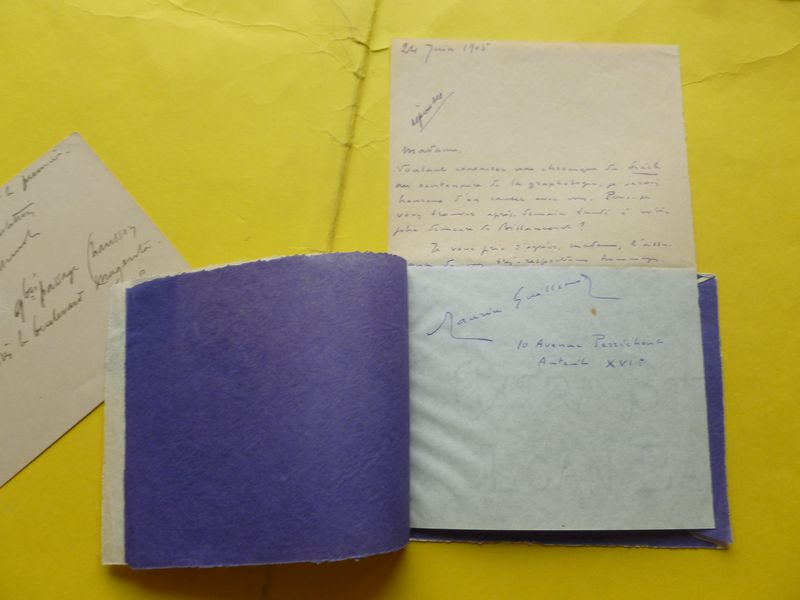 24 Juin 1905
répondre
Madame,
Voulant consacrer une chronique du Siècle
au centenaire de la graphologie, je serais
heureux d'en causer avec vous. Puis-je
vous trouver après-demain lundi à votre
jolie demeure de Billancourt ?
Je vous prie d'agréer, madame,
très-respectueux hommages.
Maurice Guillemot
10 Avenue Perrichont
Auteuil XVIe
le premier
9 bis passage Chausson
le boulevard Magenta